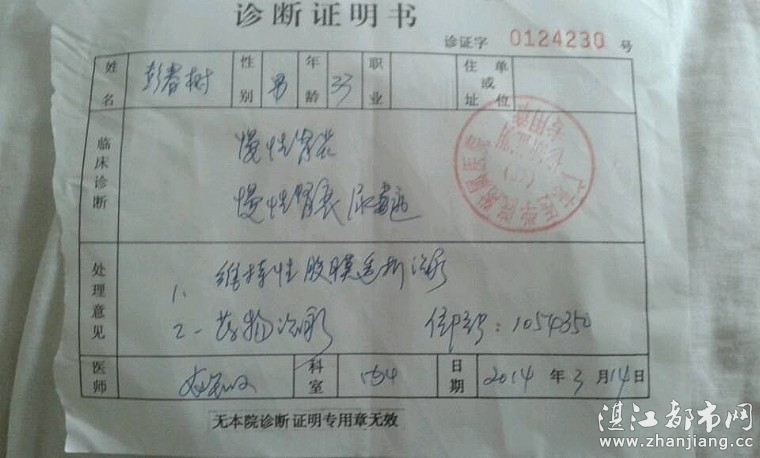 诊断证明书
诊证字 0124230 号
姓名 彭春树 性别 男 年龄 33 职业 住址或单位
临床诊断
慢性肾炎
慢性肾衰 尿毒症
处理意见
1、维持性腹膜透析治疗
2、药物治疗 住院号：1054350
医师 科室 日期 2014年3月14日
无本院诊断证明专用章无效
湛江都市网
www.zhanjiang.cc